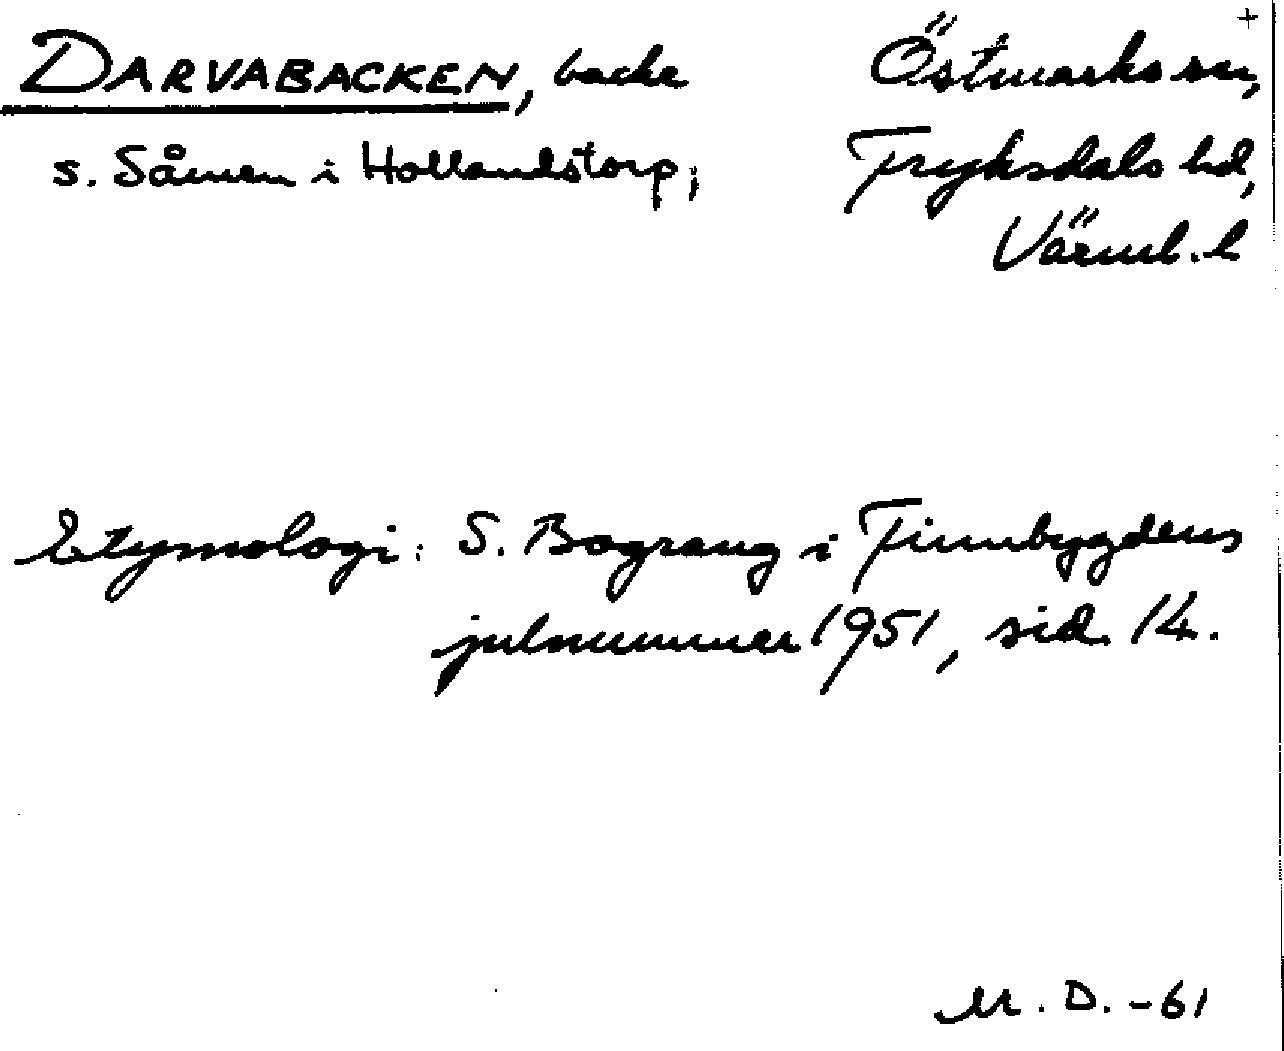 +
DARVABACKEN, backe
s. Såmen i Hollandstorp;
Östmarks sn,
Fryksdals hd,
Värml. l
Etymologi: S. Bograng i Finnbygdens
julnummer 1951, sid. 14.
M. D. -61